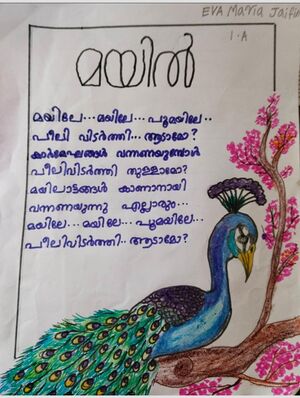 EVA Maria Jaifin
1.A
മയിൽ
മയിലേ...മയിലേ... പൂമയിലേ..
പീലി വിടർത്തി... ആടാമോ?
കാർമേഘങ്ങൾ വന്നണയുമ്പോൾ
പീലിവിടർത്തി തുള്ളാമോ?
മയിലാട്ടങ്ങൾ കാണാനായി
വന്നണയുന്നു എല്ലാരും...
മയിലേ...മയിലേ... പൂമയിലേ..
പീലിവിടർത്തി.. ആടാമോ?